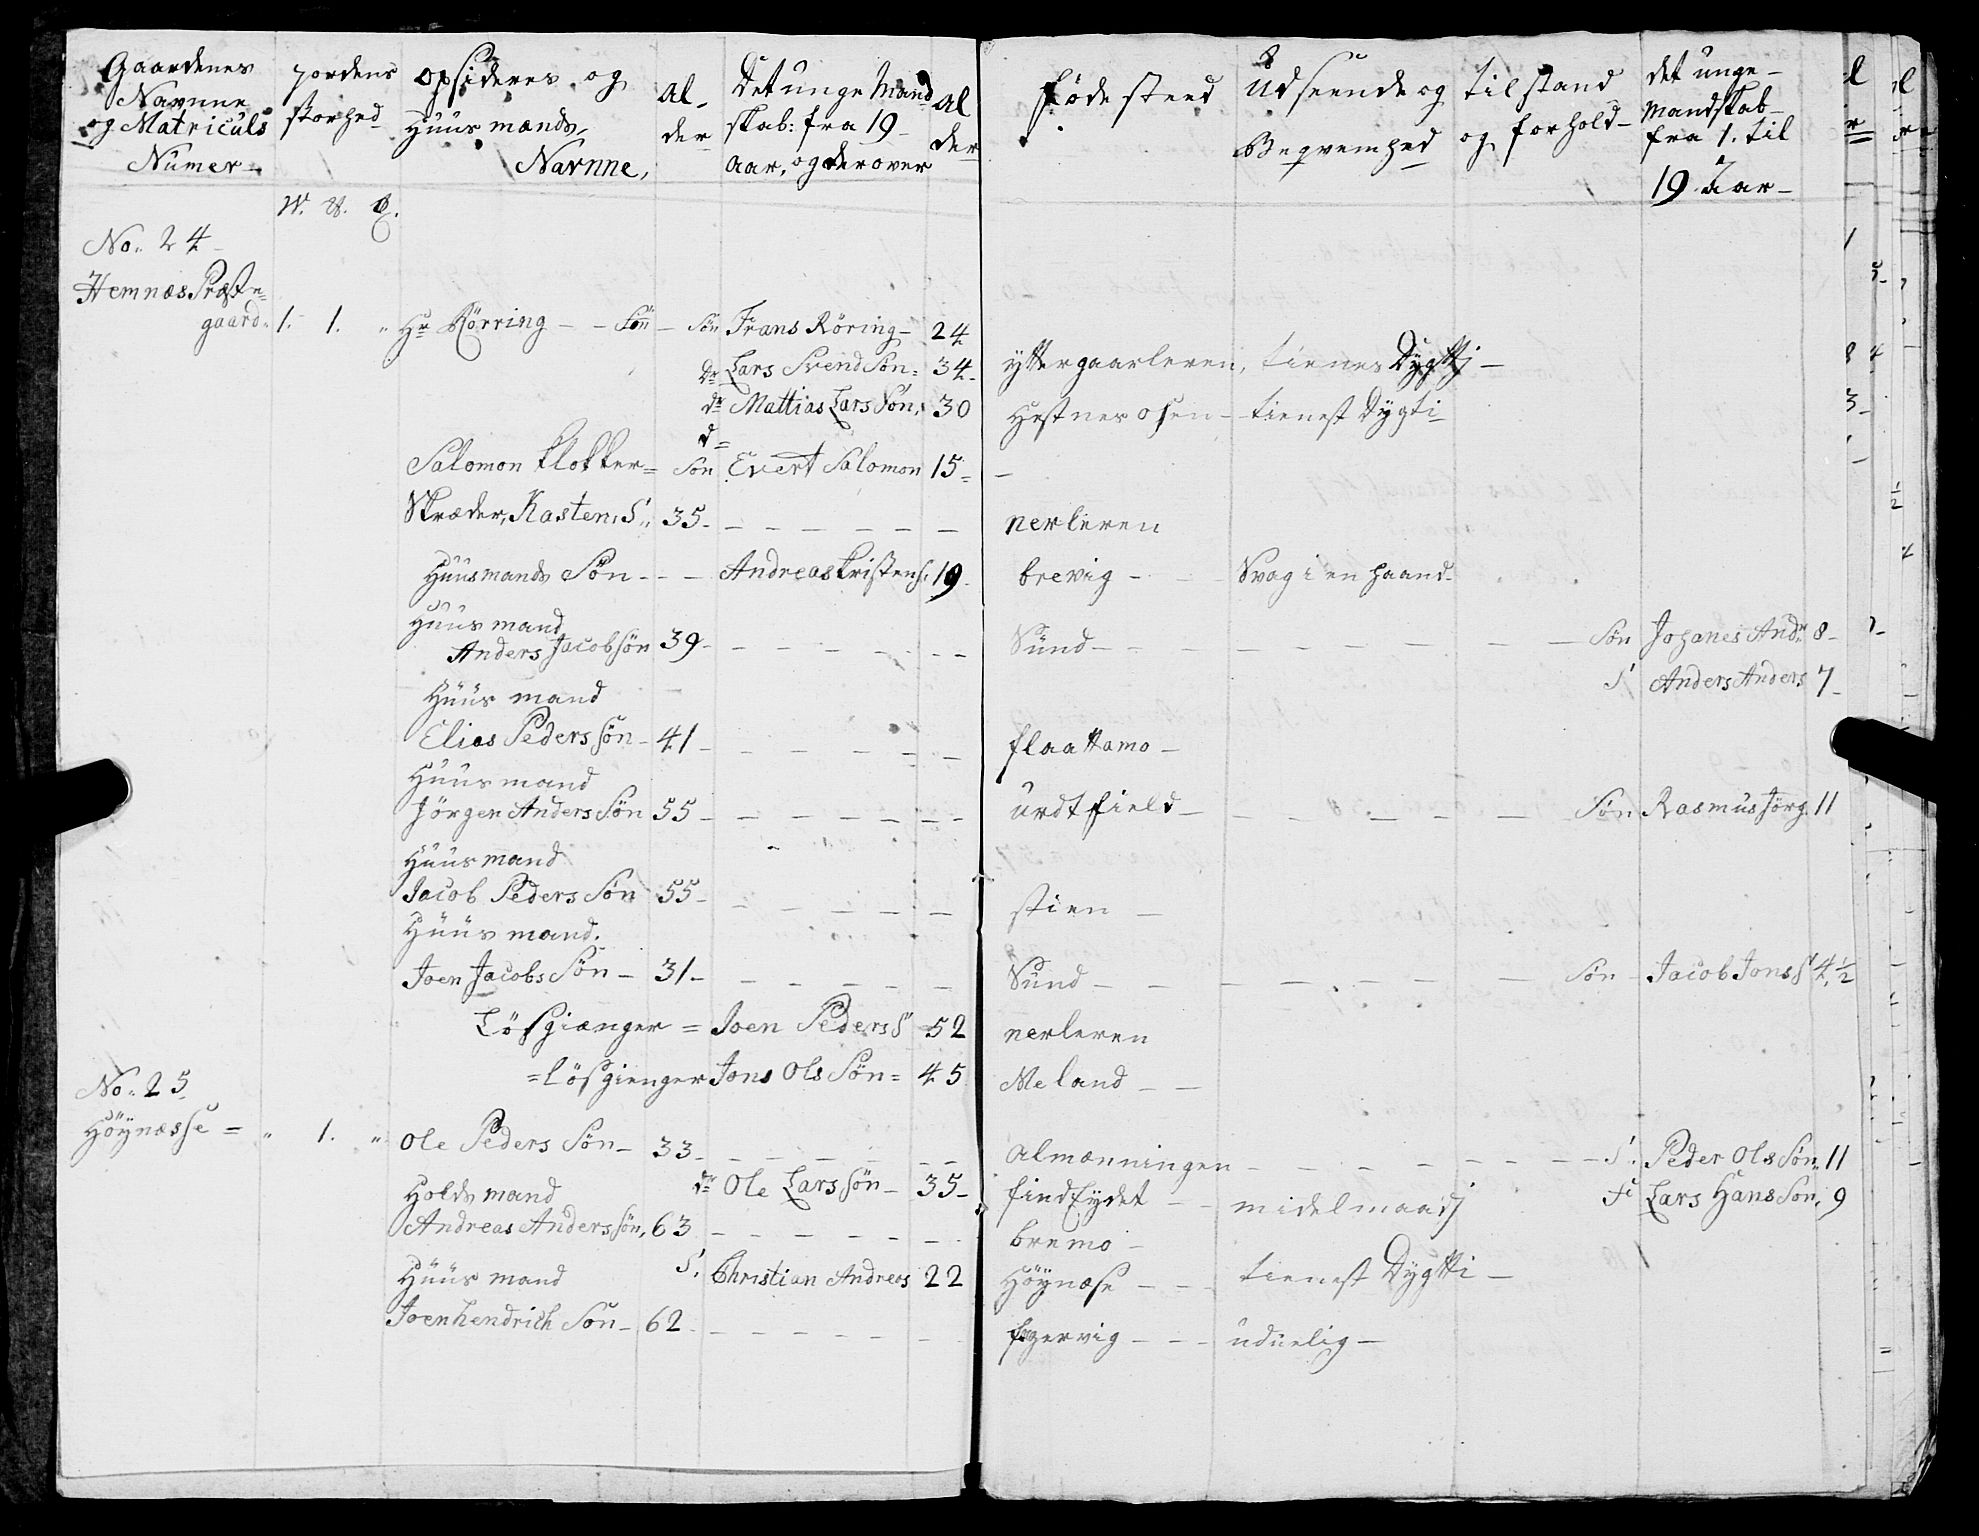 Gaardenes Navnne og Matriculs Numer
jordens storhed
opsideres og Huusmænds Navnne,
Al-der
Det unge Mandskab: fra 19 Aar, og derover
Al der
føde steed
Udseende og Beqvemhed
tilstand og forhold
det unge Mandskab fra 1. til 19 Aar
W. V.
No. 24
Hemnæs Præste-
gaard 1. 1. " Hr Rörring - - Sön - Sön Frans Röring 24
Dr Lars Svend Sön 34 yttergaarleren, tienes Dygttj
dr Mattias Lars Sön 30 Hestnes osen tienest Dygti
d=
Salomon klokker= Sön Evert Salomon 15 -
Skræder, Kasten, S. 35 nerleren
Huusmands Sön - - Andreas kristens. 19 brevig - - Svag i en haand
Huusmand
Anders Jacobsön 39 Sund Sön Johanes Andr 8
S Anders Anders 7
Huus mand
Elias Peders sön 41 flaattamo
Huusmand
Jörgen Anders Sön 55 urdtfield Sön Rasmus Jörg. 11
Huusmand
Jacob Peders Sön 55 stien
Huus mand.
Joen Jacobs Sön 31 Sund Sön Jacob Jons S 4 1/2
Lösgiænger = Joen Peders S 52 nerleren
= lösgienger Jons Ols Sön = 45 Meland
No. 25
Höynæsse = " 1. " Ole Peders Sön 33 Almænningen S. Peder Ols Sön 11
Holds mand dr Ole Lars sön 35 midelmaadj Lars Hans Sön, 9
Andreas Anders sön, 63 bremo
Huus mand S. Christian Andreas 22 Höynæse tienest Dygtti
Joen hendrich Sön 62 uduelig